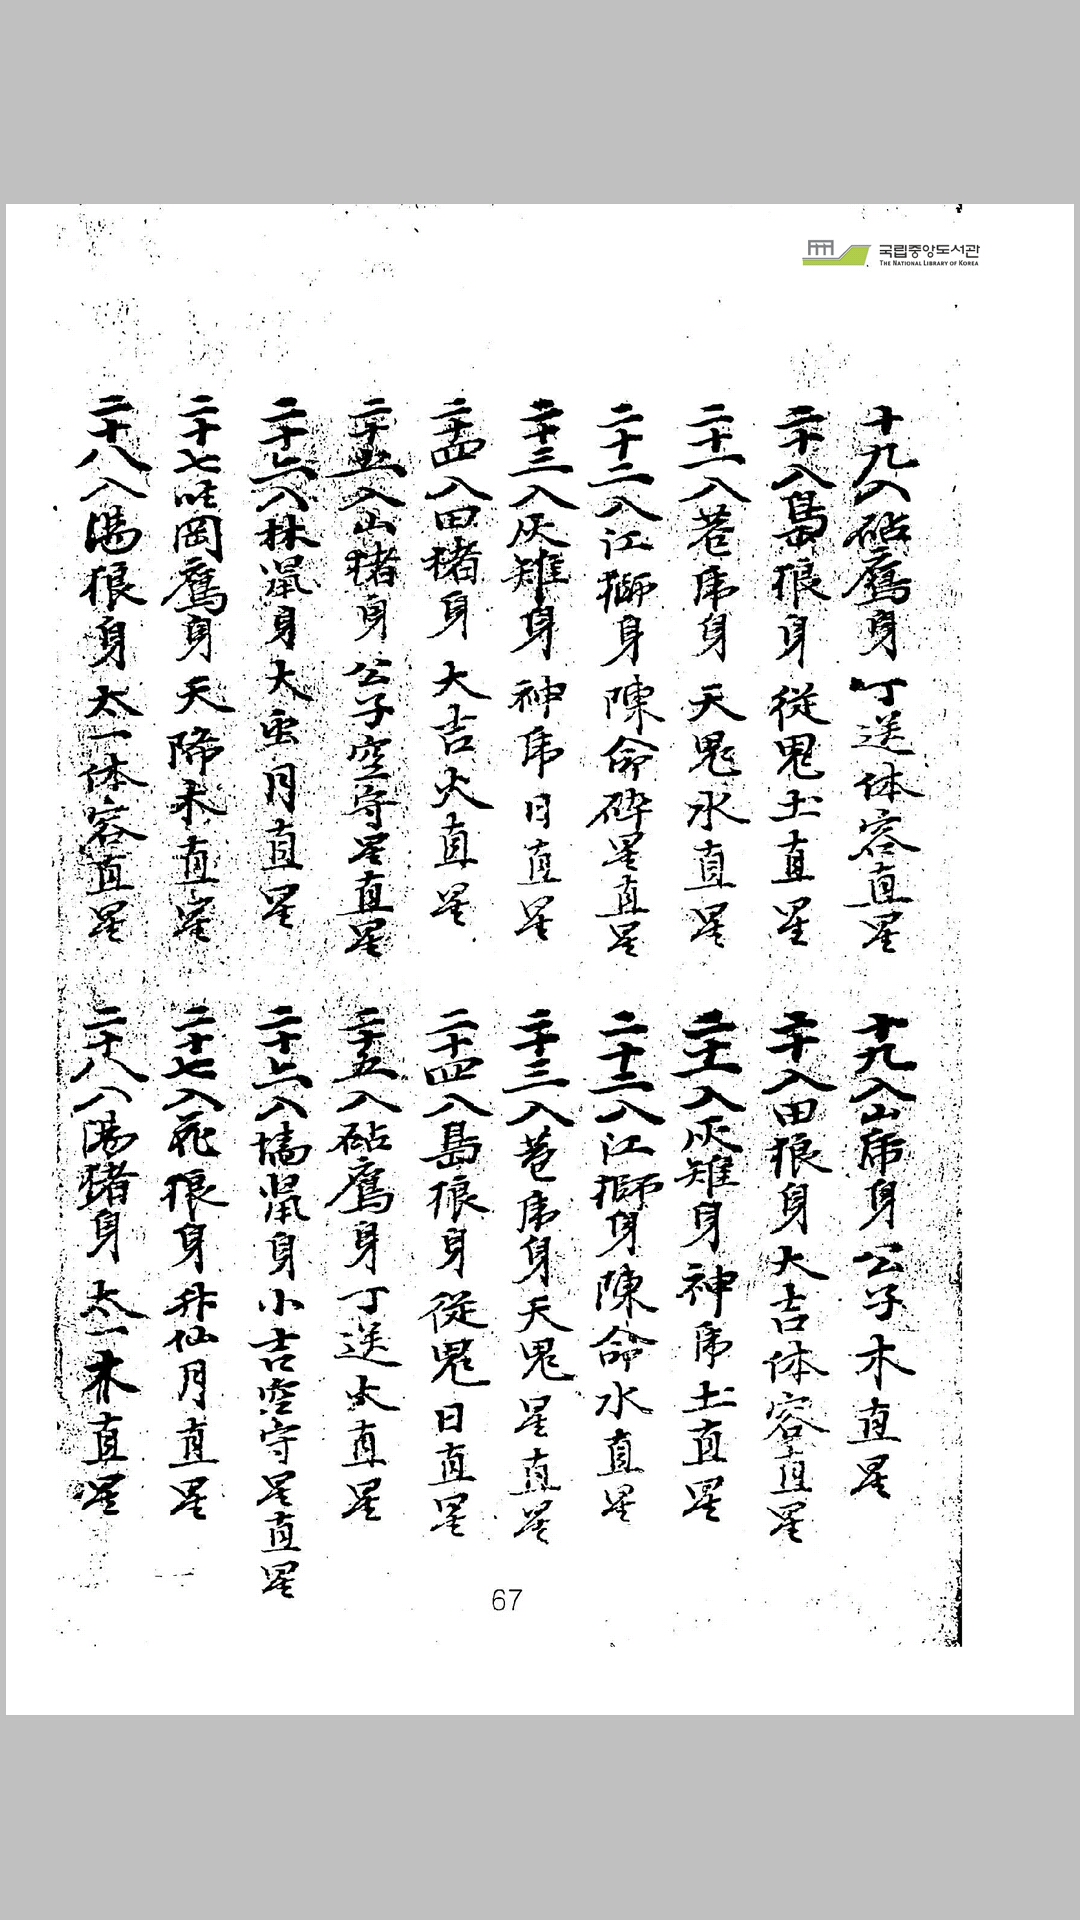 국립중앙도서관
THE NATIONAL LIBRARY OF KOREA
十九入砧鷹身 丁送体容直星
二十入島狼身 從鬼土直星
二十一入巷虎身 天鬼水直星
二十二入江獅身 陳命碎星直星
二十三入灰雉身 神虎日直星
二十四入田猪身 大吉火直星
二十五入山猪身 公子空守星直星
二十六入林鼠身 大虫月直星
二十七 岡鷹身 天降木直星
二十八入湯狼身 太一体容直星
十九入山虎身 公子木直星
二十入田狼身 大吉体容直星
二十一入灰雉身 神虎土直星
二十二入江獅身 陳命水直星
二十三入巷虎身 天鬼星直星
二十四入島狼身 從鬼日直星
二十五入砧鷹身 丁送火直星
二十六入 鼠身 小吉空守星直星
二十七入 狼身 升仙月直星
二十八入湯猪身 太一木直星
67